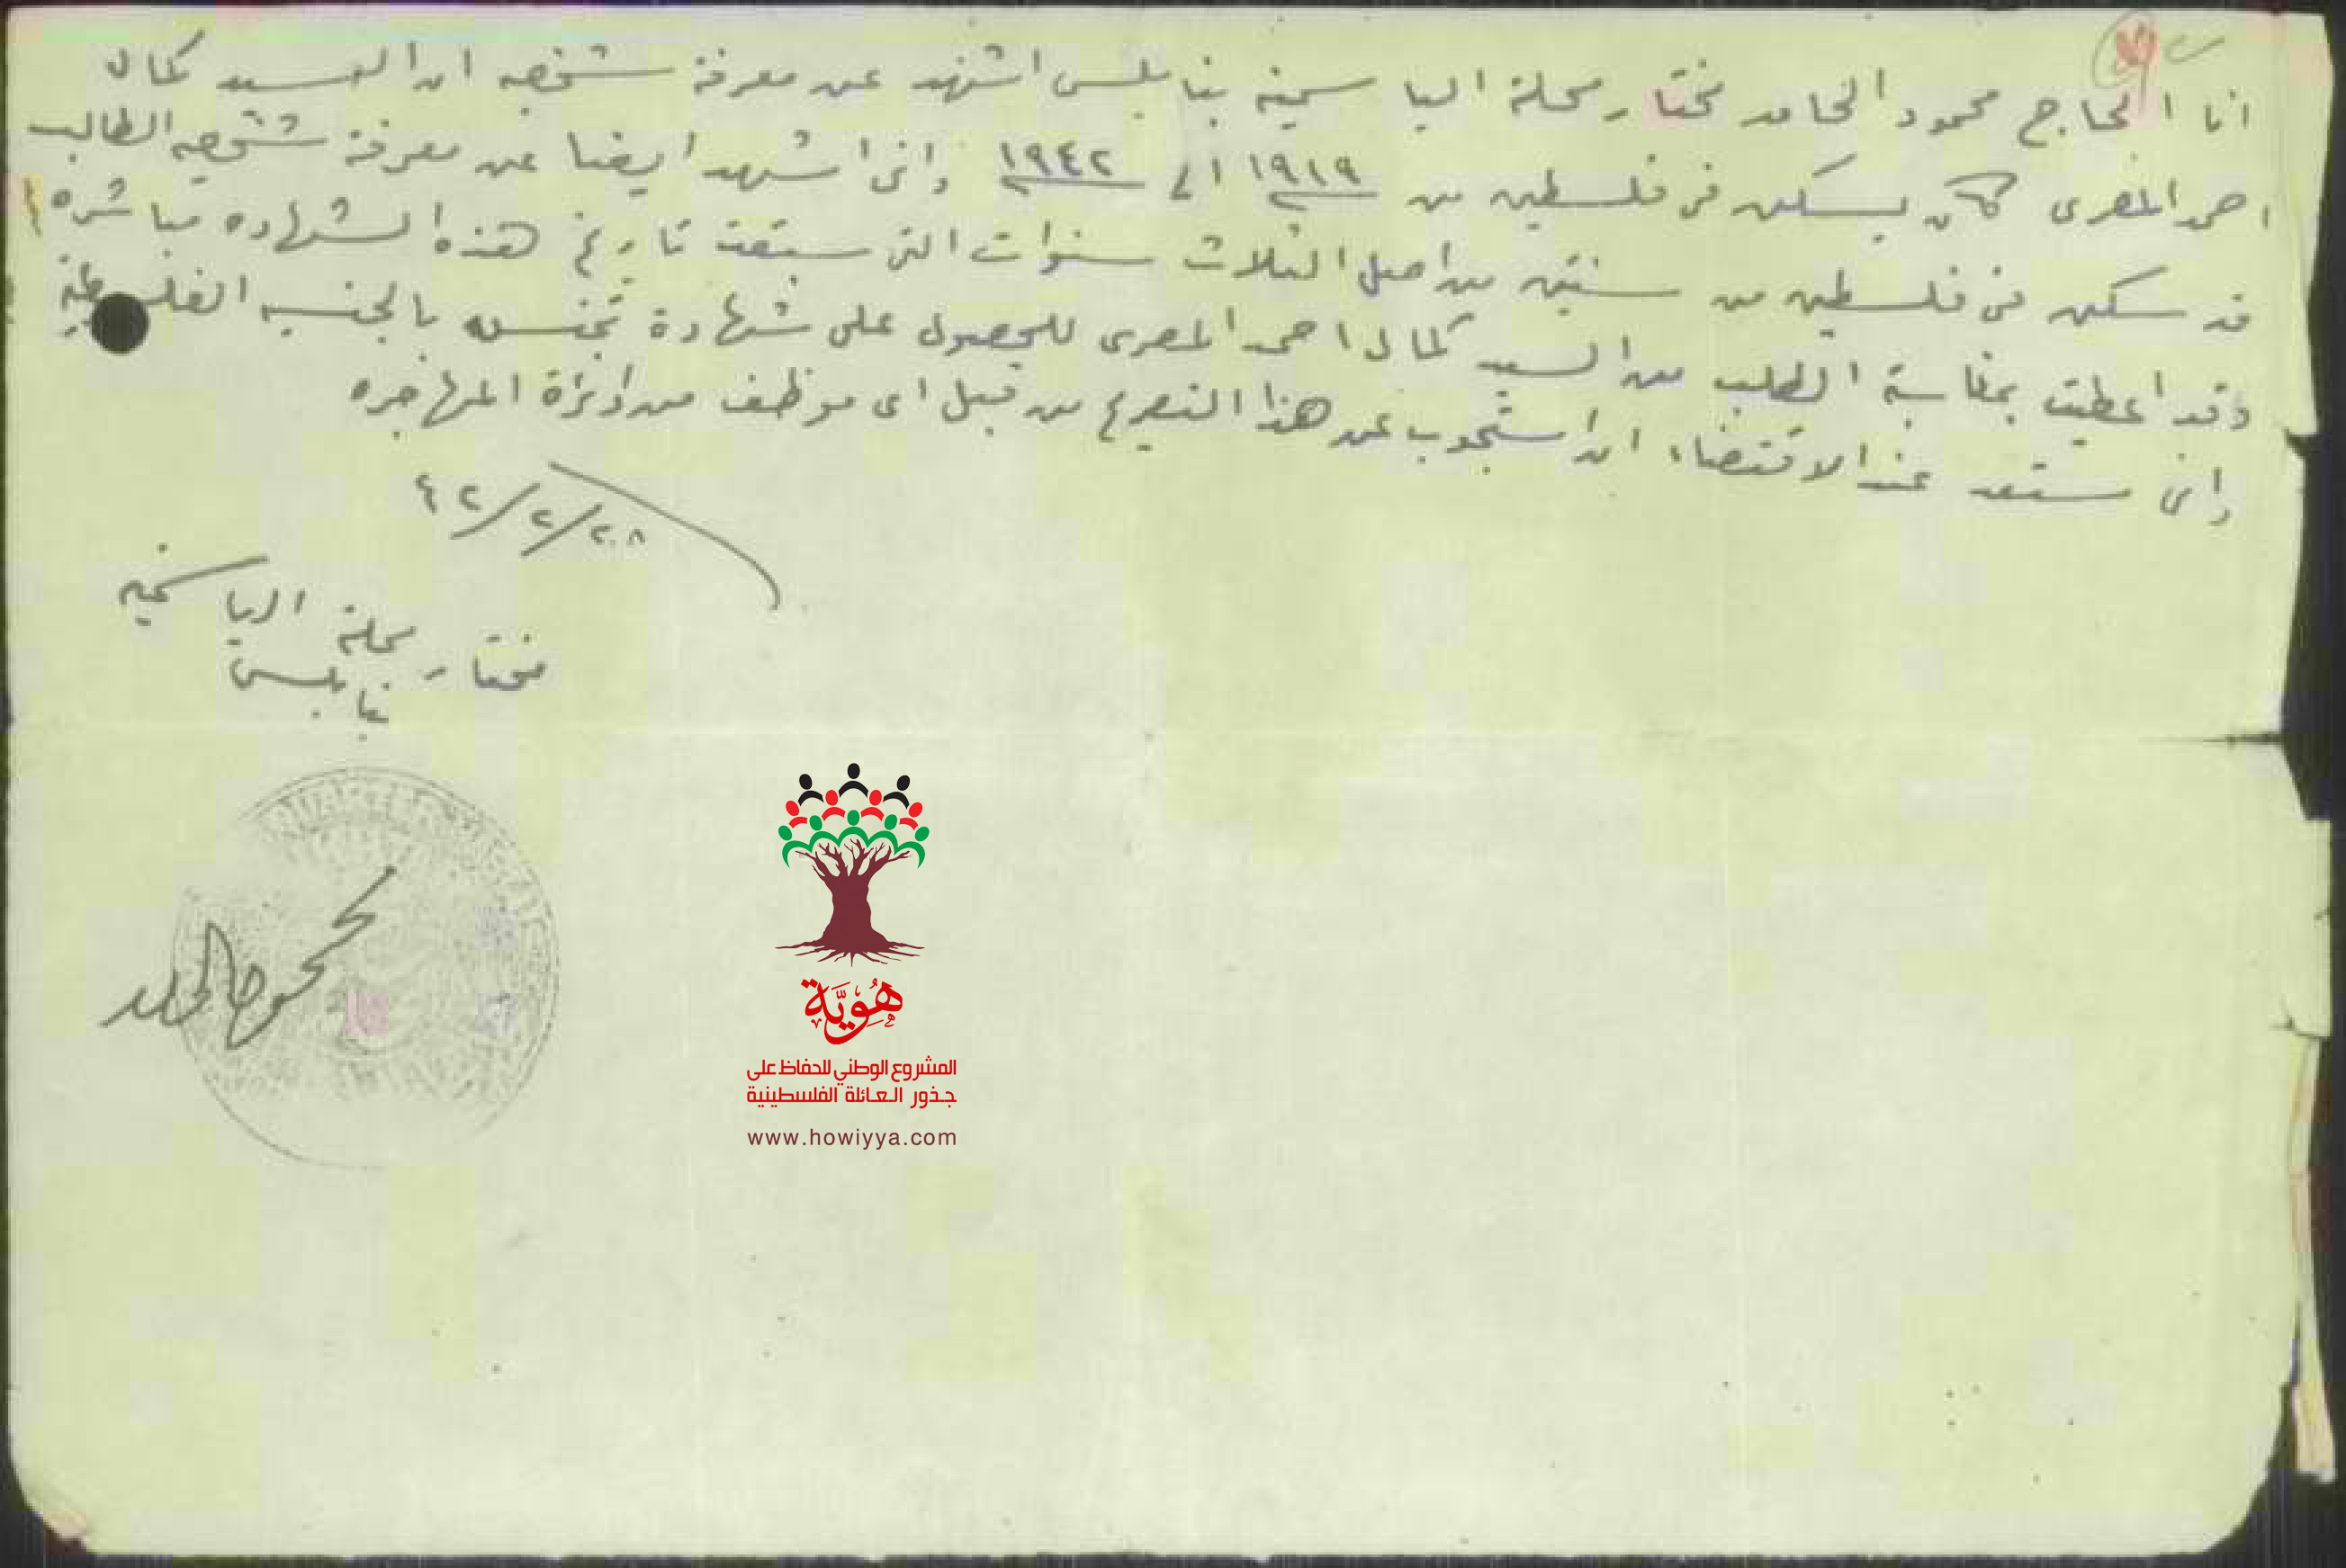 انا الحاج محمود الحامد مختار محلة الياسمينه بنابلس اشهد عن معرفة شخصيه ان السيد كمال
احمد المصرى كان يسكن فى فلسطين من ١٩١٩ الى ١٩٤٢ وانى اشهد ايضا عن معرفة شخصيه الطالب
قد سكن فى فلسطين من سنتين من اصل الثلاث سنوات التى سبقت تاريخ هذه الشهاده مباشره
وقد اعطيت بمناسبة الطلب من السيد كمال احمد المصرى للحصول على شهادة تجنس بالجنسيه الفلسطينية
وانى مستعد عند الاقتضاء ان استجوب عن هذا التصريح من قبل اى موظف من دائرة المهاجره
٢٨/٢/٤٢
مختار محلة الياسمينه
نابلس
محمود الحامد
هُوِيَّة
المشروع الوطني للحفاظ على
جذور العائلة الفلسطينية
www.howiyya.com